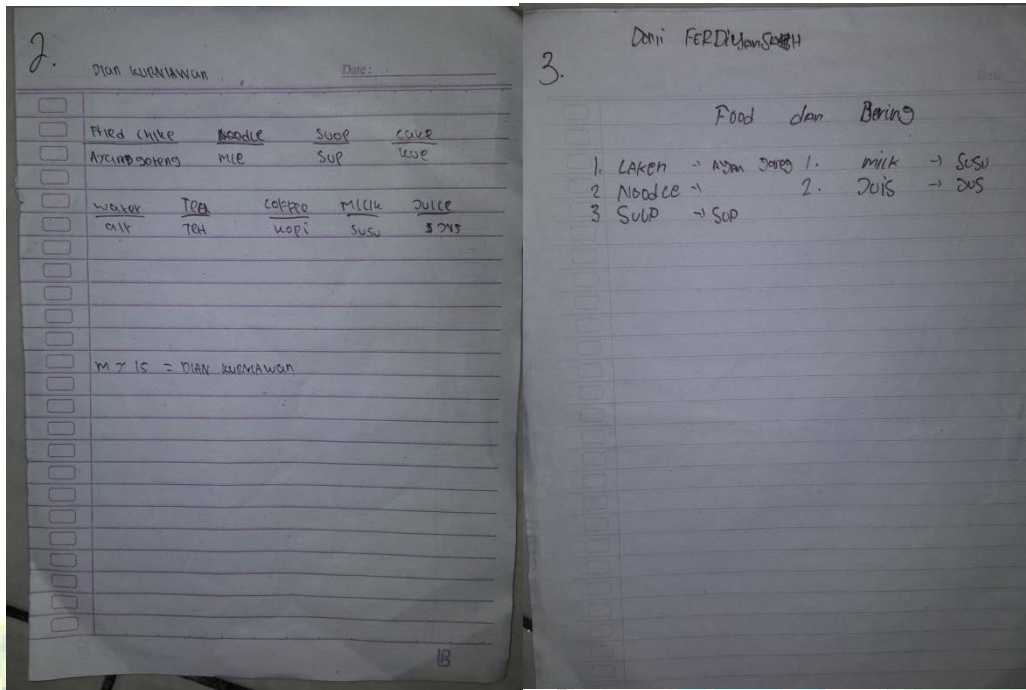 2.
DIan KURNIAWan
Date:
FRIed chike Noodle Suop cake
Ayam goreng MIe Sup kue
water Tea coffee MIlk Juice
aIr TeH kopi susu JUS
= DIAN KURNIAWan
B
3.
Doni FERDiyanSyaH
Date
Food dan Bering
1. LAKen → Ayam goreg 1. milk → SuSu
2 Noodle → 2. Juis → JUS
3 SuUP → Sup